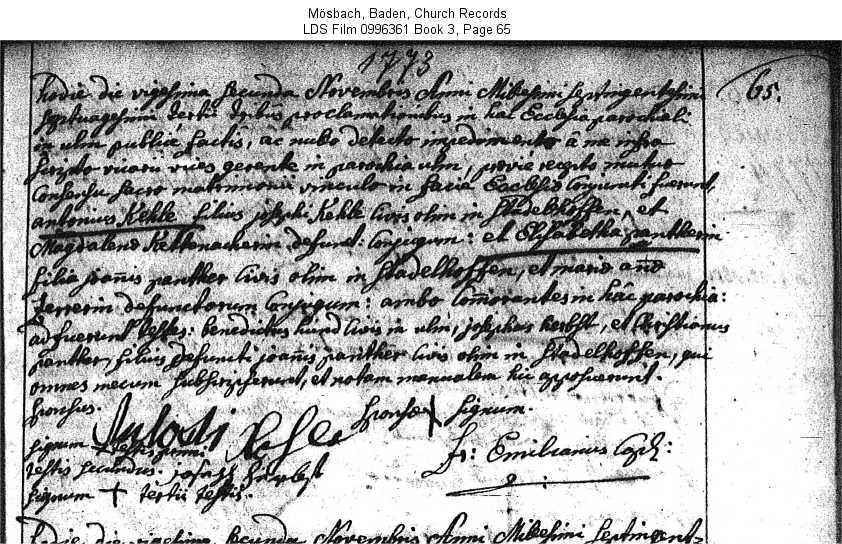 Mösbach, Baden, Church Records
LDS Film 0996361 Book 3, Page 65
1773
65.
hodie die vigesima secunda Novembris Anni Millesimi Septingentesimi
Septuagesimi tertii tribus proclamationibus in hac Ecclesia parochiali
in ulm publice factis, ac nullo detecto impedimento â me infra
scripto vicarii vices gerente in parochia ulm, previe recepto mutuo
Consensu sacro matrimonii vinculo in facia Ecclesia Conjuncti fuerunt,
antonius Kehle filius josephi Kehle Civis olim in Stadelhoffen, et
Magdalena Kettenackerin defunct: Conjugum: et Elisabetha pantherin
filia joañis panther Civis olim in Stadelhoffen, et maria añe
ferrerin defunctorum Conjugum: ambo Comorantes in hâc parochia:
adfuerunt testes: benedictus hund Civis in ulm, josephus herbst, et Christianus
panther, filius defuncti joañis panther Civis olim in Stadelhoffen, qui
omnes mecum subscripserunt, et notam manualem hic apposuerunt.
sponsus.
sponsæ + signum.
signum + testis primi
testis secundus. joseph herbst
signum + tertii testis.
fr: Emilianus
hodie die vigesima secunda Novembris Anni Millesimi Septingent=